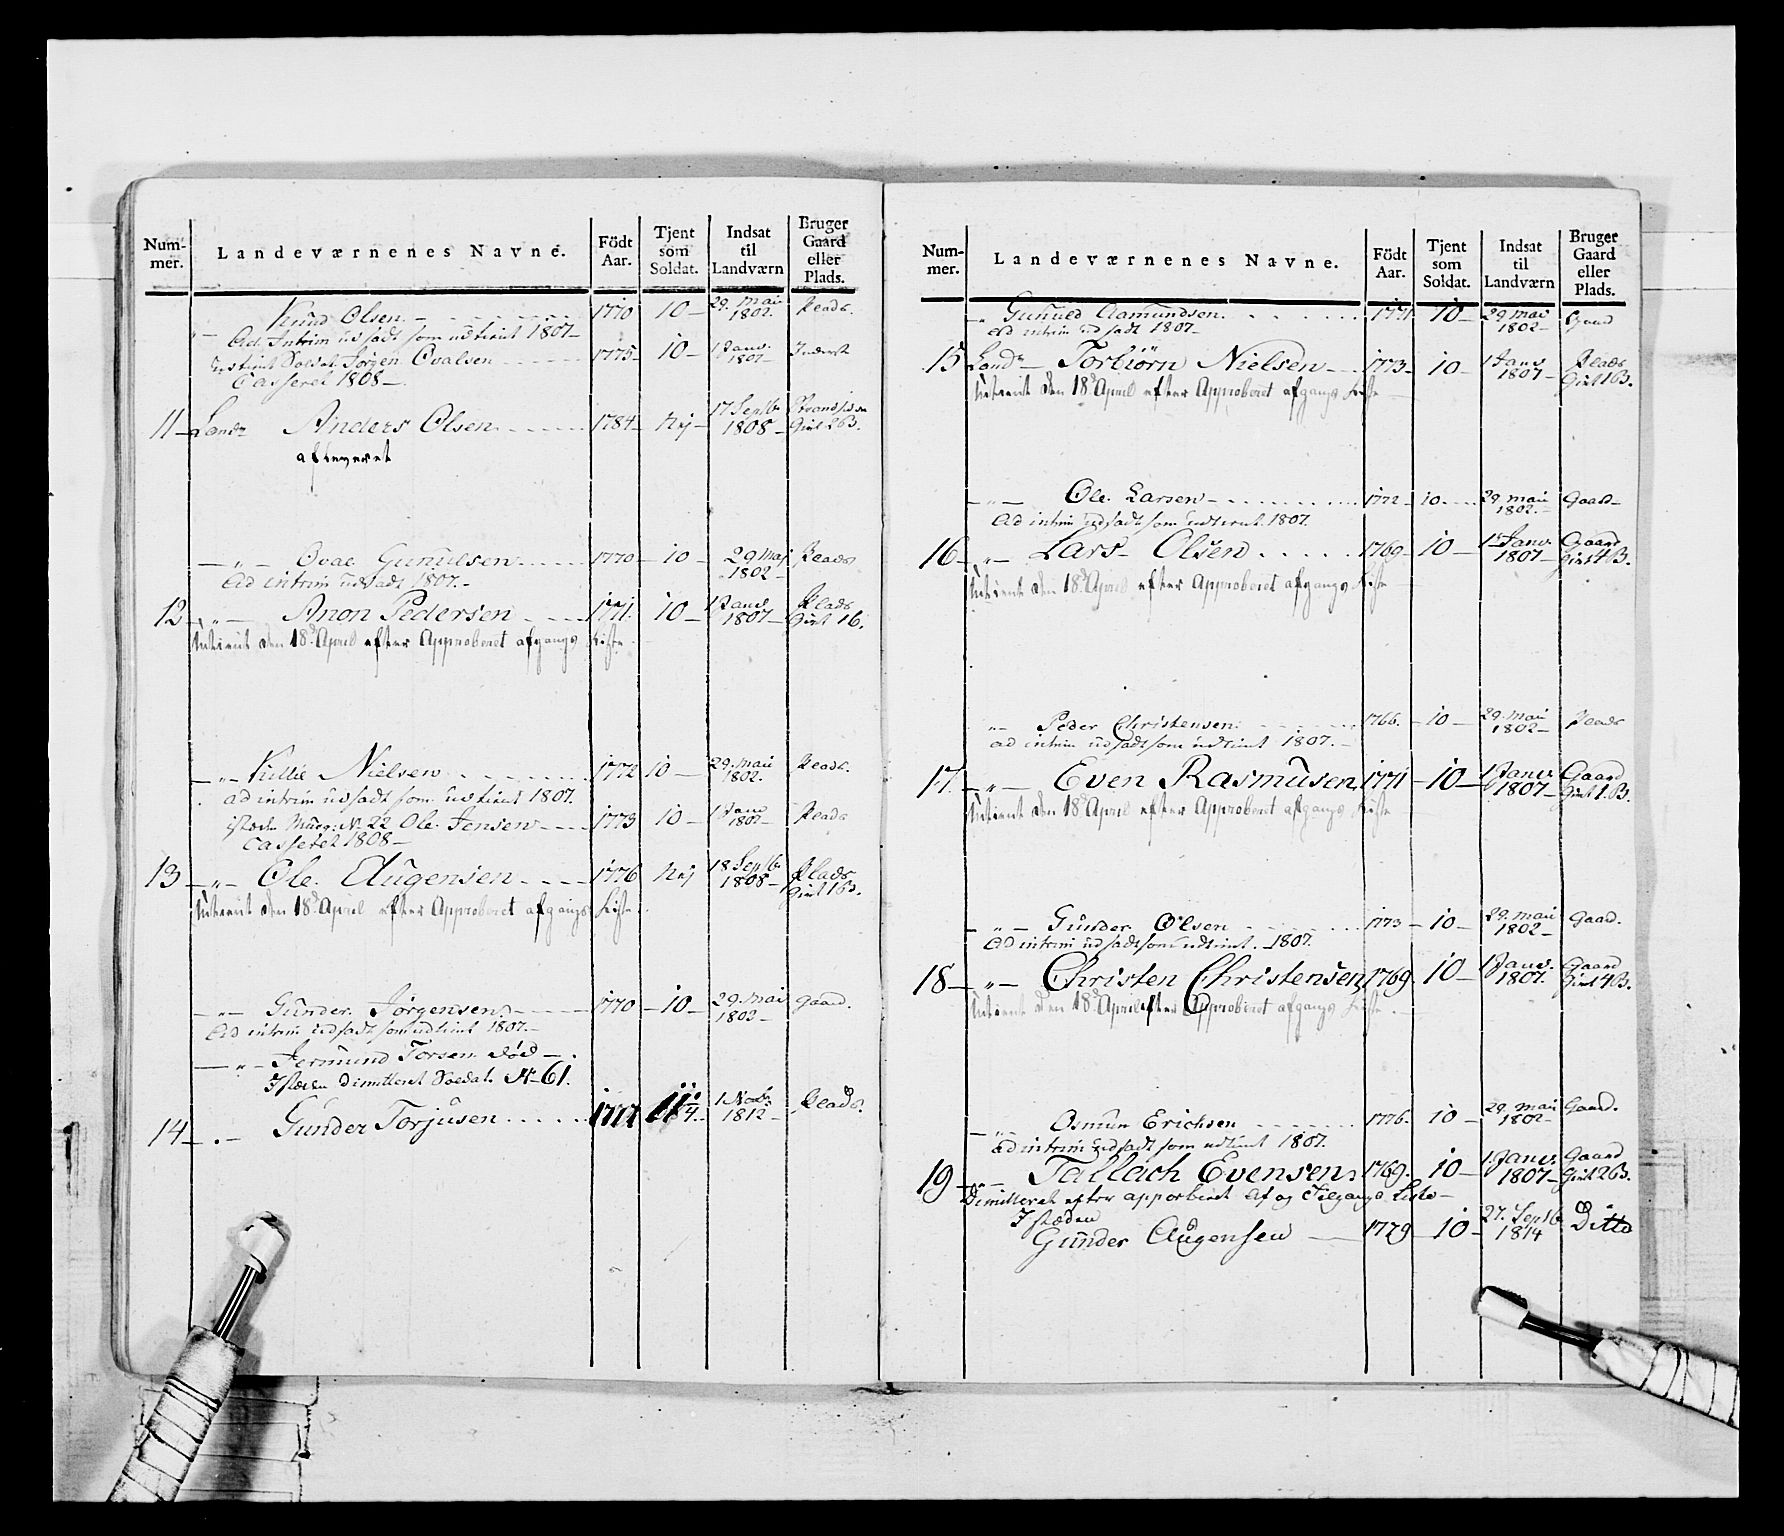 Num-
mer.
Landeværnenes Navne.
Födt
Aar.
Tjent
som
Soldat.
Indsat
til
Landværn
Bruger
Gaard
eller
Plads.
Knud Olsen 1770 10 29. Mai 1802. Plads.
Ad. Intrim udsadt som udtient 1807
Jörgen Ovalsen 1775 10 1 Janv. 1807 Inderst
Casseret 1808
11 Landv Anders Olsen 1784 Nej 17 Septb. 1808 Strandsidden Givt 2 B.
afleveret
Ovae Gunulsen 1770 10 29 Maj 1802 Plads
Ad intrim udsadt 1807.
12 Anon Pedersen 1771. 10 1 Janv 1807 Plads Givt 1 b.
Uttient den 18d April efter Approberet afgangs Liste
Killie Nielsen 1772 10 29. Mai 1802. Plads.
ad intrim udsadt som udtient 1807.
istæden Nr. 22 Ole Jensen 1773 10 1 Janv 1802 Plads
Casseret 1808
13 Ole Augensen 1776 Nej 18 Septb. 1808 Plads Givt 1 B.
Uttient den 18d April efter Approberet afgangs Liste
Gunder Jörgensen 1770 10 29. Mai 1802 Gaard.
Ad intrim udsadt som udtient 1807.
Jermund Torsen död
Istæden Dimitteret Soldat No 61.
14 Gunder Torjusen 1777 11 1 Novb. 1812 Plads.
Num-
mer.
Landeværnenes Navne.
Födt
Aar.
Tjent
som
Soldat.
Indsat
til
Landværn
Bruger
Gaard
eller
Plads.
Gunuld Aamundsen 1771 10 29 Mai 1802
Ad intrim udsadt 1807
15 Landv Torbiörn Nielsen 1773 10 1 Janv 1807 Plads Givt 1 B.
Uttient den 18d April efter Approberet afgangs Liste
Ole Larsen 1772 10 29. Mai 1802. Gaard
Ad intrim udsadt som udtient. 1807.
16 Lars Olsen 1769 10 1 Janv. 1807 Gaard Givt 4 B.
Uttient den 18d April efter Approberet afgangs Liste
Peder Christensen 1766. 10 29. Mai 1802 Plads
ad intrim udsadt som udtient 1807.
17. Even Rasmusen 1771 10 1 Janv. 1807 Gaard Givt 1. B.
Uttient den 18d April efter Approberet afgangs Liste
Gunder Olsen 1773 10 29. Mai 1802 Gaard.
Ad intrim udsadt som udtient. 1807.
18 Christen Christensen 1769 10 1 Janv. 1807. Gaard Givt 4 B.
Uttient den 18d April efter Approberet afgangs Liste
Osmun Erichsen 1776. 10 29. Mai 1802 Gaard.
ad intrim udsadt som udtient 1807.
19 Tallach Evensen 1769. 10 1 Janv. 1807 Gaard Givt 2 B.
Dimitteret efter approberet Af og Tilgangs Liste
Istæden
Gunder Augensen 1779 10 27. Septb 1814 Ditto